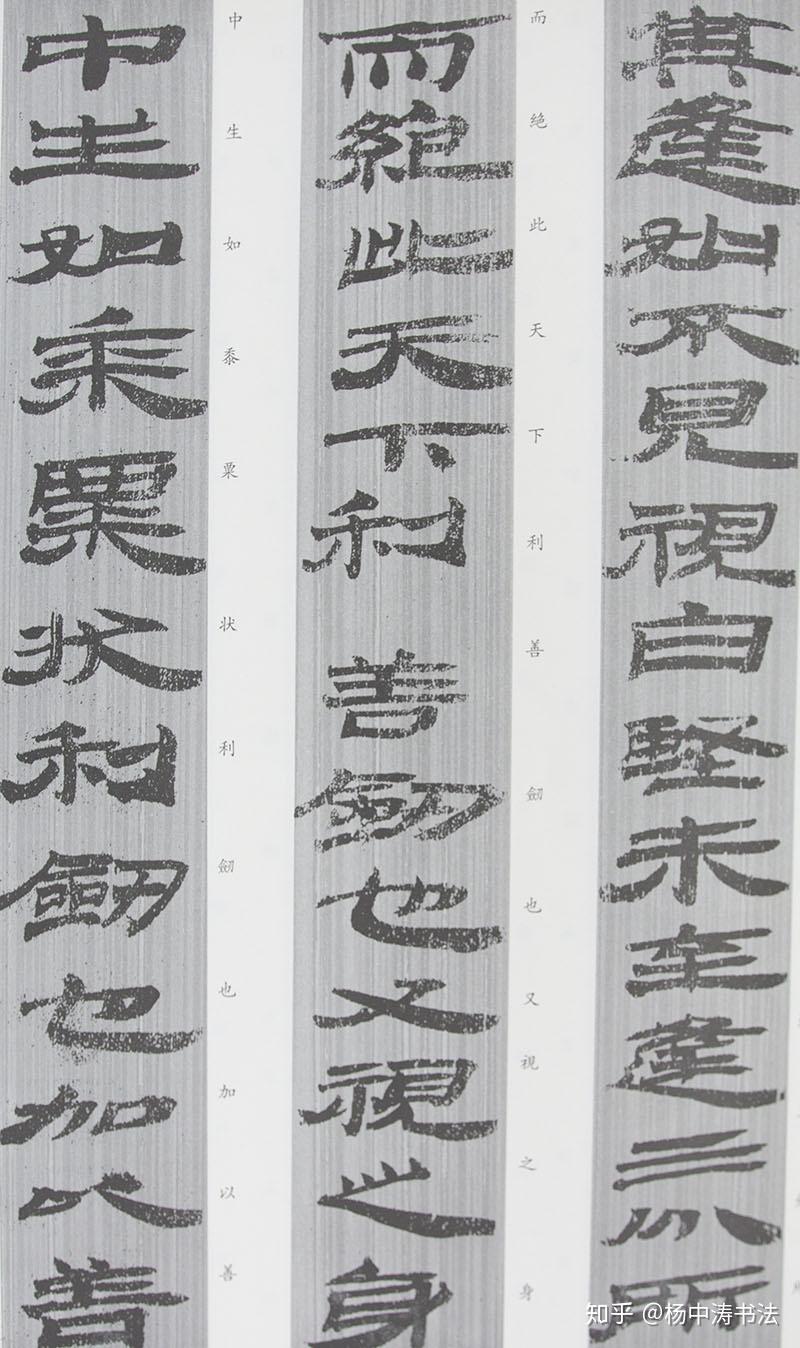 其逢如不見視白堅未至逢三分所
而絕此天下利善劒也又視之身
而绝此天下利善劒也又視之身
中生如黍粟狀利劒也加以善
中生如黍粟状利劒也加以善
知乎 @杨中涛书法